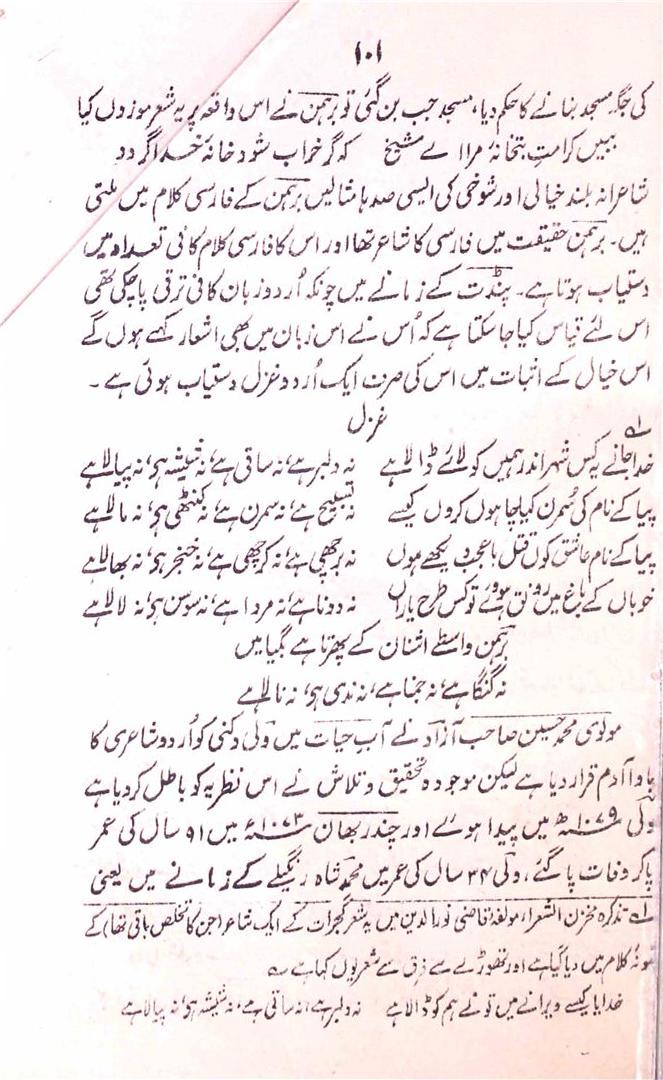 ۱۰۱
کی جگہ مسجد بنانے کا حکم دیا، مسجد جب بن گئی تو برہمن نے اس واقعہ پر یہ شعر موزوں کیا
ببیں کرامتِ بتخانۂ مرا اے شیخ کہ گر خراب شود خانۂ خدا گردد
شاعرانہ بلند خیالی اور شوخی کی ایسی صدہا مثالیں برہمن کے فارسی کلام میں ملتی
ہیں۔ برہمن حقیقت میں فارسی کا شاعر تھا اور اس کا فارسی کلام کافی تعداد میں
دستیاب ہوتا ہے۔ پنڈت کے زمانے میں چونکہ اُردو زبان کافی ترقی پا چکی تھی
اس لئے قیاس کیا جا سکتا ہے کہ اُس نے اس زبان میں بھی اشعار کہے ہوں گے
اس خیال کے اثبات میں اس کی صرف ایک اُردو غزل دستیاب ہوئی ہے۔
غزل
خدا جانے یہ کس شہر اندر ہمیں کو لائے ڈالا ہے نہ دلبر ہے، نہ ساقی ہے، نہ شیشہ ہی، نہ پیالا ہے
پیا کے نام کی سُمرن کیا چاہوں کروں کیسے نہ تسبیح ہے، نہ سمرن ہے، نہ کنٹھی ہی، نہ مالا ہے
پیا کے نام عاشق کوں قتل با عجب دیکھے ہوں نہ برچھی ہے، نہ کرچھی ہے، نہ خنجر ہی، نہ بھالا ہے
خوباں کے باغ میں رونق ہووئے تو کس طرح یاراں نہ دونا ہے، نہ مروا ہے، نہ سوسن ہی، نہ لالا ہے
برہمن واسطے اشنان کے پھرتا ہے بگیا میں
نہ گنگا ہے، نہ جمنا ہے، نہ ندی ہی، نہ نالا ہے
مولوی محمد حسین صاحب آزاد نے آب حیات میں ولی دکنی کو اُردو شاعری کا
باوا آدم قرار دیا ہے لیکن موجودہ تحقیق و تلاش نے اس نظریہ کو باطل کر دیا ہے
ولی ۱۰۷۹ھ میں پیدا ہوئے اور چندر بھان ۱۰۷۳ھ میں ۹۱ سال کی عمر
پا کر وفات پا گئے، ولی ۳۴ سال کی عمر میں محمد شاہ رنگیلے کے زمانے میں یعنی
لہ تذکرہ مخزن الشعراء مولفہ قاضی نور الدین میں یہ شعر گجرات کے ایک شاعر (جن کا تخلص باقی تھا) کے
نمونۂ کلام میں دیا گیا ہے اور تھوڑے سے فرق سے شعر یوں کہا ہے
خدایا کیسے ویرانے میں تو نے ہم کو ڈالا ہے نہ دلبر ہے، نہ ساقی ہے، نہ شیشہ ہی، نہ پیالا ہے